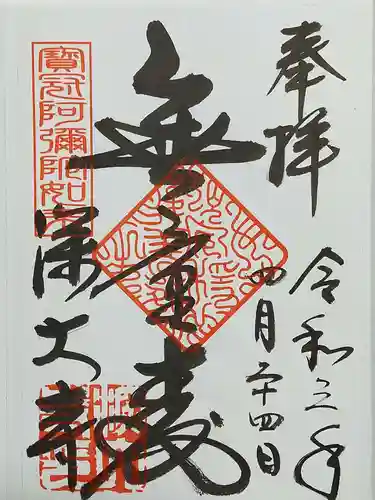 奉拝
令和三年
四月二十四日
無量寿
寶冠阿彌陀如来
深大寺